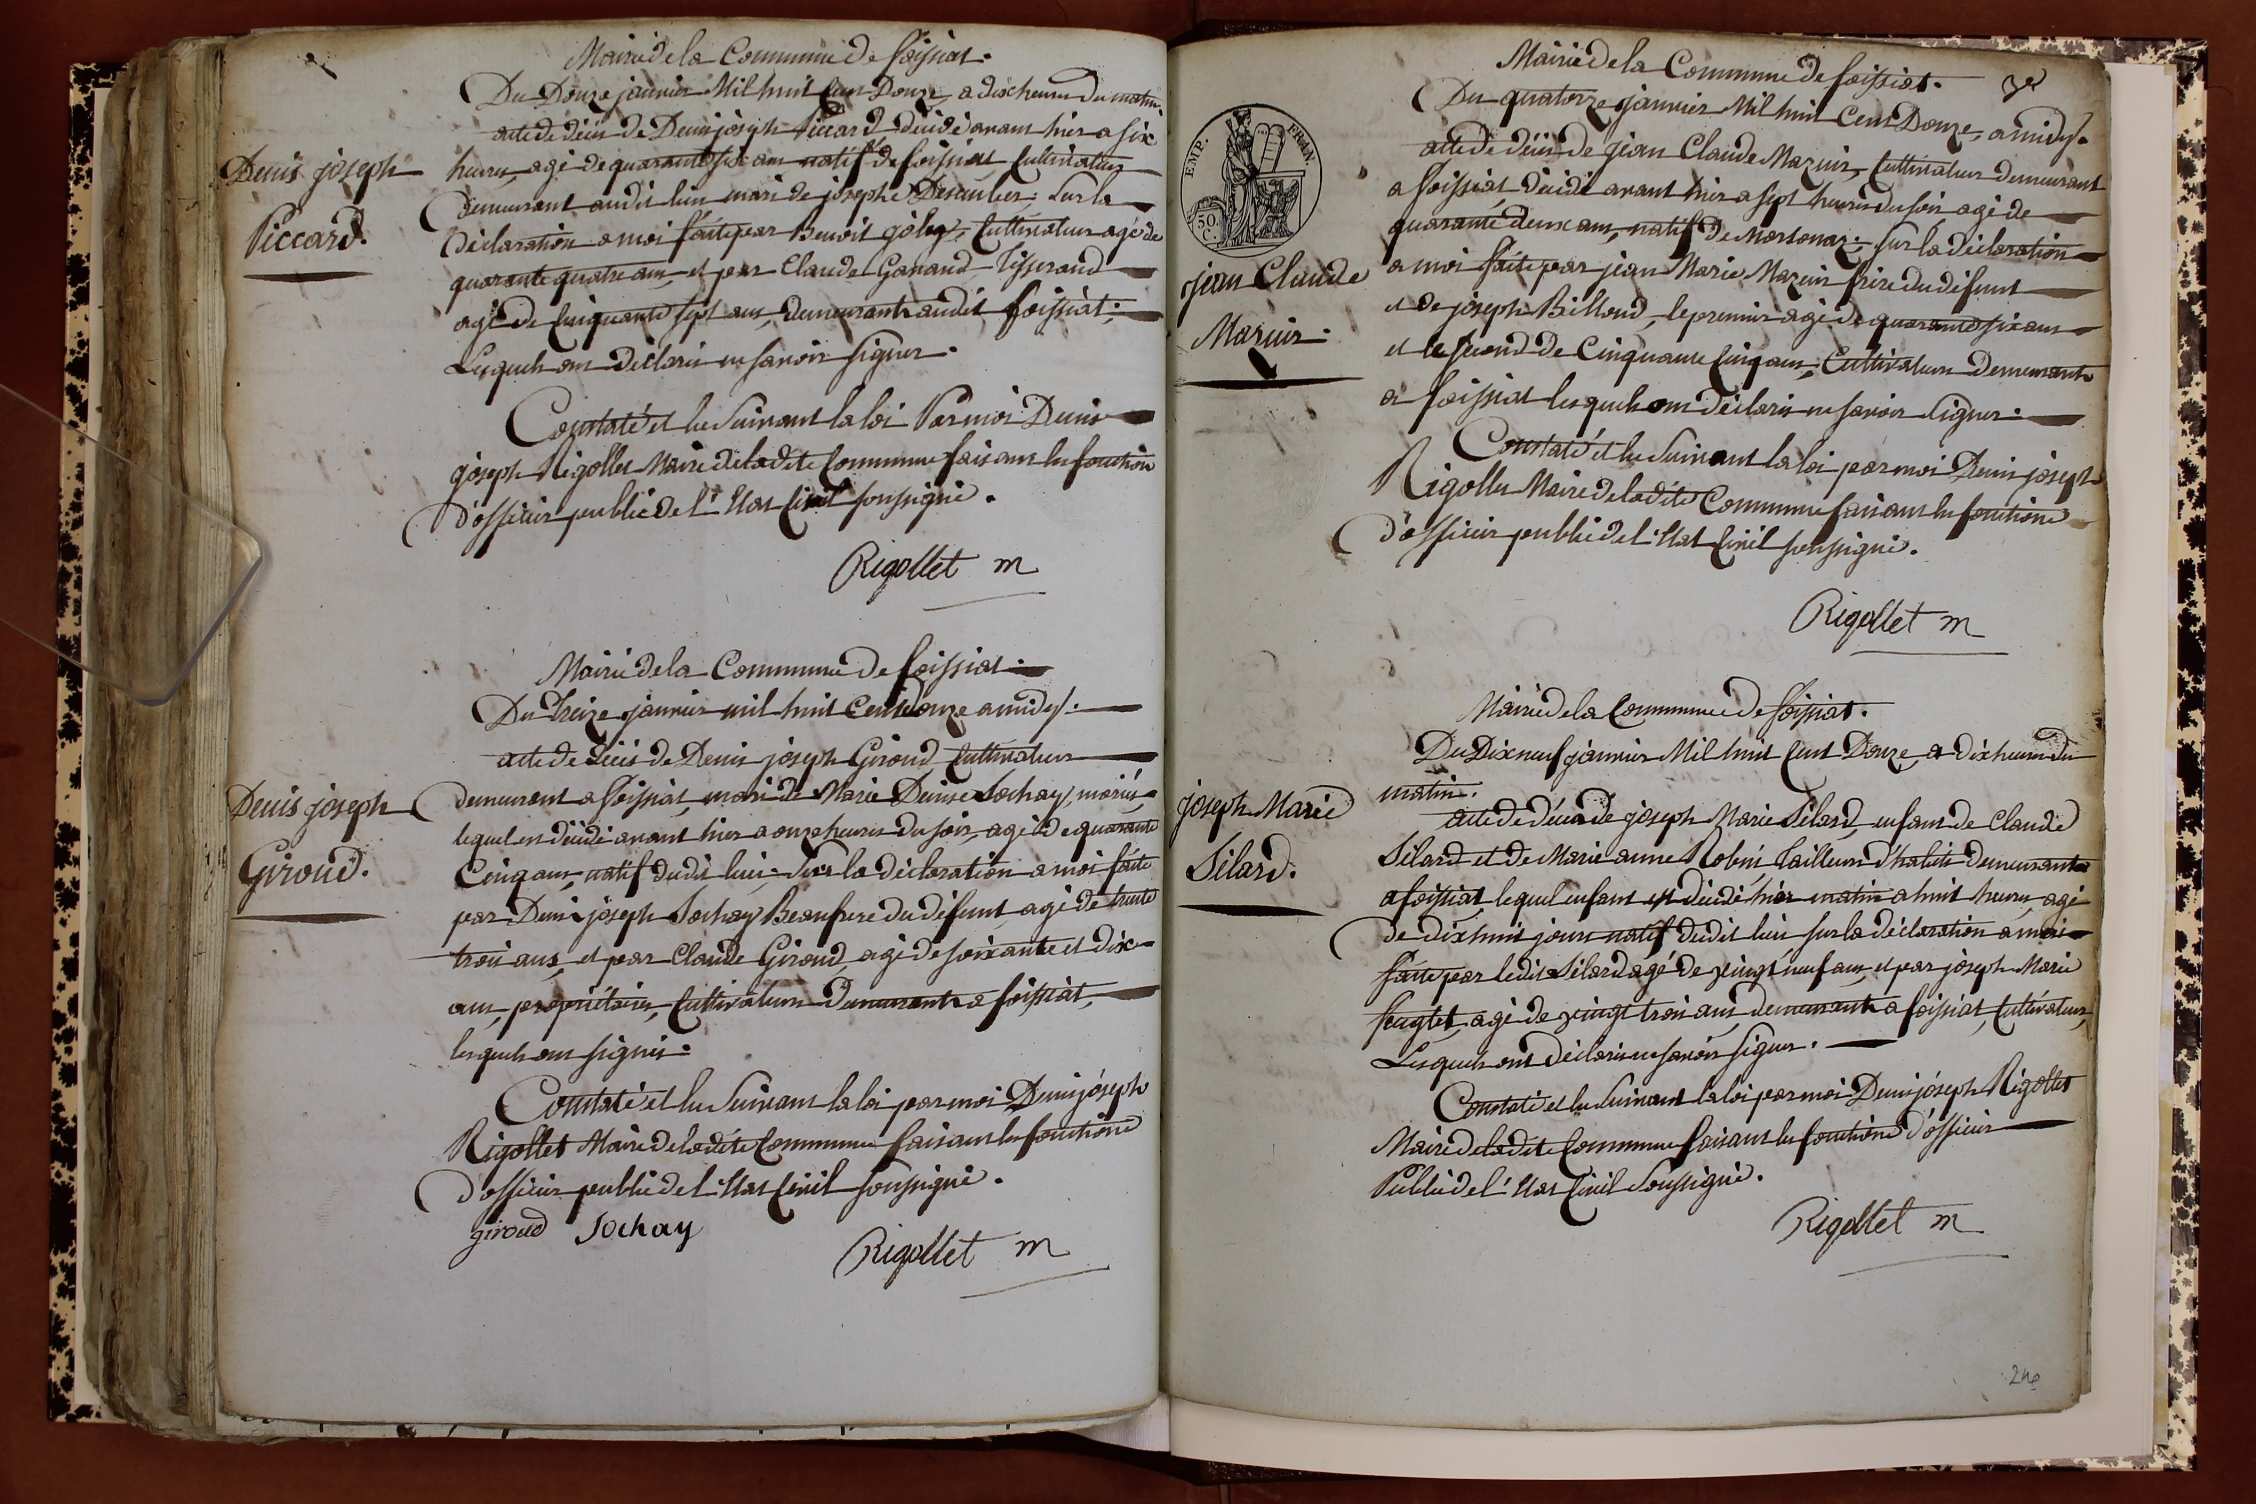 Mairie de la Commune de foissiat.
Du Douze janvier Mil huit Cent Douze, a dix heures du matin
acte de décès de Denis joseph Piccard décédé avant hier a six
Denis joseph
Piccard.
heures, agé de quarante six ans natif de foissiat, Cultivateur
demeurant audit lieu mari de josephe Sur la
déclaration a moi faite par Benoit Cultivateur agé de
quarante quatre ans, et par Claude Tisserand
agé de Cinquante sept ans, demeurants audit foissiat;
Lesquels ont déclaré ne savoir signer.
Constaté et lu Suivant la loi Par moi Denis
joseph Rigollet Maire de ladite Commune faisant les fonctions
d'officier public de l'Etat Civil soussigné.
Rigollet m
Mairie de la Commune de foissiat.
Du treize janvier mil huit Cent douze a midy.
acte de décès de Denis joseph Giroud Cultivateur
Denis joseph
Giroud.
demeurant a foissiat, mari de Marie Denise Sochay, mariés,
lequel est décédé avant hier a onze heures du soir, agé de quarante
Cinq ans, natif dudit lieu; Sur la déclaration a moi faite
par Denis joseph Sochay Beaufrere du défunt, agé de trente
trois ans, et par Claude Giroud, agé de soixante et dix
ans, propriétaires, Cultivateurs demeurants a foissiat,
lesquels ont signés.
Constaté et lu Suivant la loi par moi Denis joseph
Rigollet Maire de ladite Commune faisant les fonctions
d'officier public de l'Etat Civil soussigné.
giroud Sochay
Rigollet m
Mairie de la Commune de foissiat.
Du quatorze janvier Mil huit Cent Douze, a midy.
acte de décès de jean Claude Maruir, Cultivateur demeurant
EMP. FRAN.
50.
C.
jean Claude
Maruir.
a foissiat, décédé avant hier a sept heures du soir agé de
quarante deux ans, natif de Marsonaz; sur la déclaration
a moi faite par jean Marie Maruir frère du défunt
et de joseph Billoud, le premier agé de quarante six ans
et le second de Cinquante Cinq ans, Cultivateurs Demeurants
a foissiat lesquels ont déclaré ne savoir signer.
Constaté et lu Suivant la loi par moi Denis joseph
Rigollet Maire de ladite Commune faisant les fonctions
d'officier public de l'Etat Civil soussigné.
Rigollet m
Mairie de la Commune de foissiat.
Du Dix neuf janvier Mil huit Cent Douze, a dix heures du
matin.
acte de décès de joseph Marie Silard, enfant de Claude
joseph Marie
Silard.
Silard et de Marie anne Robin, tailleurs d'habits demeurants
a foissiat, lequel enfant est décédé hier matin a huit heures, agé
de dix huit jours natif dudit lieu sur la déclaration a moi
faite par ledit Silard agé de vingt neuf ans, et par joseph Marie
feuglet, agé de vingt trois ans, demeurants a foissiat, Cultivateurs,
Lesquels ont déclaré ne savoir signer.
Constaté et lu Suivant la loi par moi Denis joseph Rigollet
Maire de ladite Commune faisant les fonctions d'officier
Public de l'Etat Civil Soussigné.
Rigollet m